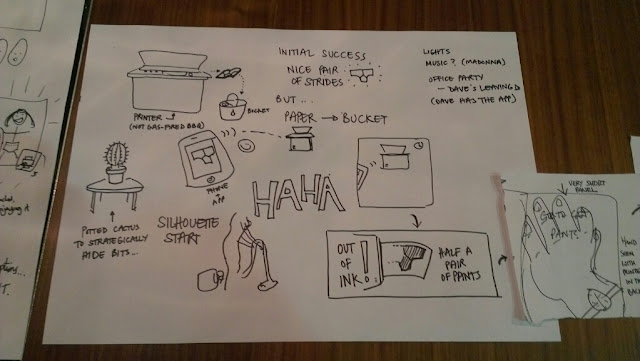 INITIAL SUCCESS
NICE PAIR
OF STRIDES
BUT...
PAPER → BUCKET
LIGHTS
MUSIC? (MADONNA)
OFFICE PARTY
- DAVE'S LEAVING DO
(DAVE HAS THE APP)
PRINTER
(NOT GAS-FIRED BBQ)
BUCKET
PHONE
+
APP
HAHA
POTTED CACTUS
TO STRATEGICALLY
HIDE BITS...
SILHOUETTE
START
OUT
OF
INK
HALF A
PAIR
OF PANTS
VERY SHORT
PANEL
GOTO GET
PANTS
HAND
SEEN
WITH
PRINTER
IN THE